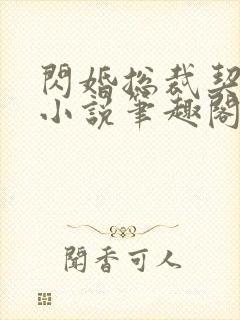 閃婚总裁契
小説筆趣閣
聞香可人